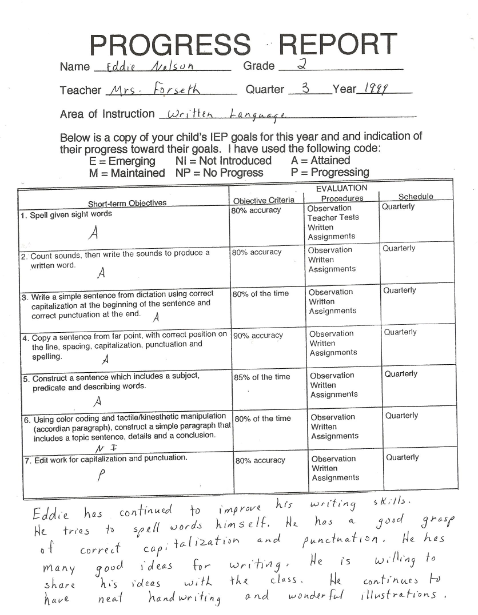 PROGRESS REPORT
Name Eddie Nelson Grade 2
Teacher Mrs. Forseth Quarter 3 Year 1999
Area of Instruction Written Language
Below is a copy of your child's IEP goals for this year and and indication of
their progress toward their goals. I have used the following code:
E = Emerging NI = Not Introduced A = Attained
M = Maintained NP = No Progress P = Progressing
Short-term Objectives Objective Criteria EVALUATION Procedures Schedule
1. Spell given sight words
A
80% accuracy
Observation
Teacher Tests
Written
Assignments
Quarterly
2. Count sounds, then write the sounds to produce a
written word.
A
80% accuracy
Observation
Written
Assignments
Quarterly
3. Write a simple sentence from dictation using correct
capitalization at the beginning of the sentence and
correct punctuation at the end. A
80% of the time
Observation
Written
Assignments
Quarterly
4. Copy a sentence from far point, with correct position on
the line, spacing, capitalization, punctuation and
spelling. A
90% accuracy
Observation
Written
Assignments
Quarterly
5. Construct a sentence which includes a subject,
predicate and describing words.
A
85% of the time
Observation
Written
Assignments
Quarterly
6. Using color coding and tactile/kinesthetic manipulation
(accordian paragraph), construct a simple paragraph that
includes a topic sentence, details and a conclusion.
NI
80% of the time
Observation
Written
Assignments
Quarterly
7. Edit work for capitalization and punctuation.
P
80% accuracy
Observation
Written
Assignments
Quarterly
Eddie has continued to improve his writing skills.
He tries to spell words himself. He has a good grasp
of correct capitalization and punctuation. He has
many good ideas for writing. He is willing to
share his ideas with the class. He continues to
have neat handwriting and wonderful illustrations.